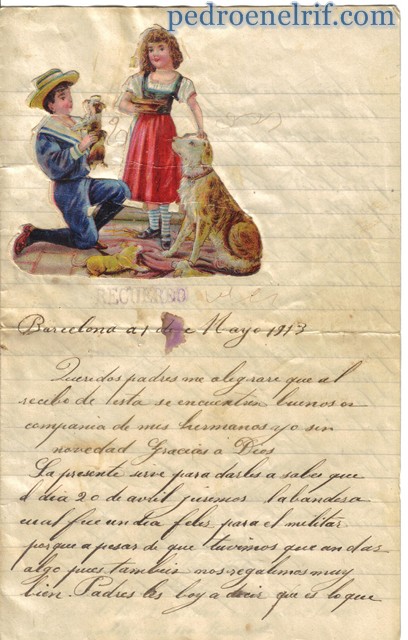 pedroenelrif.com
RECUERDO
Barcelona a 1 de Mayo 1913
Queridos padres me alegrare que al
recibo de esta se encuentren buenos en
compania de mis hermanos yo sin
novedad Gracias a Dios
La presente sirve para darles a saber que
el dia 20 de avril juremos la bandera
cual fue un dia feles para el militar
porque a pesar de que tuvimos que andar
algo pues tambien nos regalemos muy
bien. Padres les boy a decir que es lo que